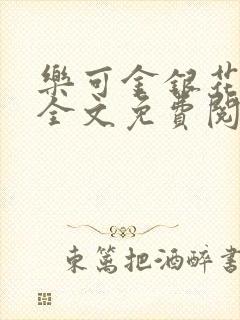 樂可金銀花
全文免費閱
東篱把酒醉書